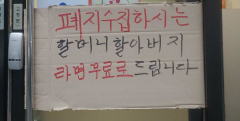 폐지수집하시는
할머니할아버지
라면무료로드립니다